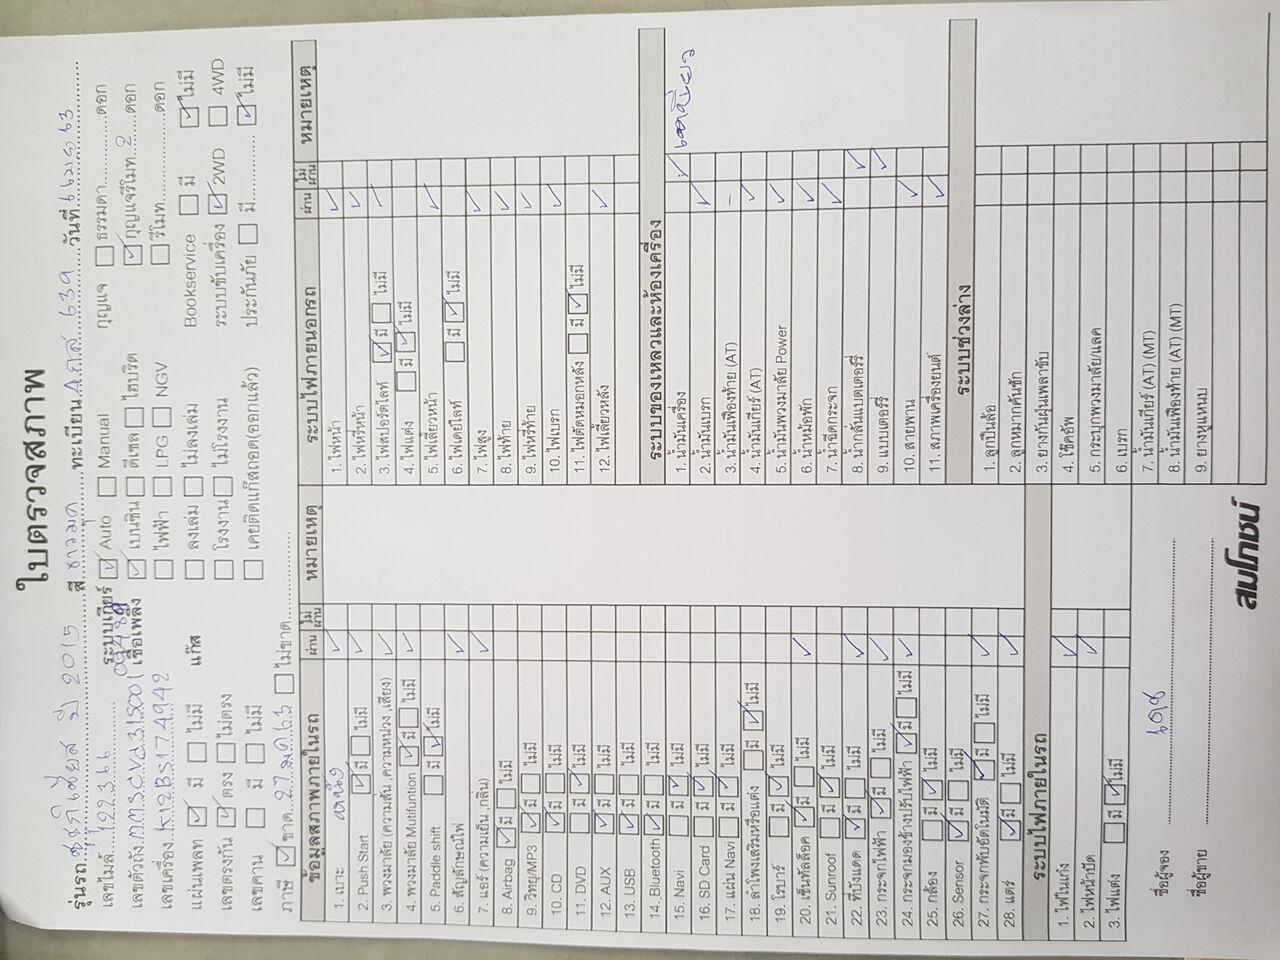 ใบตรวจสภาพ
รุ่นรถ ซูซูกิ เซียส ปี 2015 สี ขาวมุก ทะเบียน 639 วันที่
เลขไมล์ 122366 ระบบเกียร์ Auto Manual กุญแจ ธรรมดา ดอก
เลขตัวถัง เชื้อเพลิง เบนซิน ดีเซล ไฮบริด กุญแจรีโมท 2 ดอก
เลขเครื่อง K12BS174942 ไฟฟ้า LPG NGV รีโมท ดอก
แผ่นเพลท มี ไม่มี แก๊ส ลงเล่ม ไม่ลงเล่ม Bookservice มี ไม่มี
เลขตรงกัน ตรง ไม่ตรง โรงงาน ไม่โรงงาน ระบบขับเครื่อง 2WD 4WD
เลขคาน มี ไม่มี เคยติดแก๊สถอด(ออกแล้ว) ประกันภัย มี ไม่มี
ภาษี ขาด ไม่ขาด
ข้อมูลสภาพภายในรถ ผ่าน ไม่ผ่าน หมายเหตุ
1. เบาะ
2. Push Start มี ไม่มี
3. พวงมาลัย (ความสั่น,ความหน่วง,เสียง)
4. พวงมาลัย Mutifuntion มี ไม่มี
5. Paddle shift มี ไม่มี
6. สัญลักษณ์ไฟ
7. แอร์ (ความเย็น,กลิ่น)
8. Airbag มี ไม่มี
9. วิทยุ/MP3 มี ไม่มี
10. CD มี ไม่มี
11. DVD มี ไม่มี
12. AUX มี ไม่มี
13. USB มี ไม่มี
14. Bluetooth มี ไม่มี
15. Navi มี ไม่มี
16. SD Card มี ไม่มี
17. แผ่น Navi มี ไม่มี
18. ลำโพงเสริมหรือแต่ง มี ไม่มี
19. โรบาร์ มี ไม่มี
20. เซ็นทัลล็อค มี ไม่มี
21. Sunroof มี ไม่มี
22. ที่บังแดด มี ไม่มี
23. กระจกไฟฟ้า มี ไม่มี
24. กระจกมองข้างปรับไฟฟ้า มี ไม่มี
25. กล้อง มี ไม่มี
26. Sensor มี ไม่มี
27. กระจกพับอัตโนมัติ มี ไม่มี
28. แตร์ มี ไม่มี
ระบบไฟภายในรถ
1. ไฟในเก๋ง
2. ไฟหน้าปัด
3. ไฟแต่ง มี ไม่มี
ระบบไฟภายนอกรถ ผ่าน ไม่ผ่าน หมายเหตุ
1. ไฟหน้า
2. ไฟหรี่หน้า
3. ไฟสปอร์ตไลท์ มี ไม่มี
4. ไฟแต่ง มี ไม่มี
5. ไฟเลี้ยวหน้า
6. ไฟเดย์ไลท์ มี ไม่มี
7. ไฟสูง
8. ไฟท้าย
9. ไฟหรี่ท้าย
10. ไฟเบรก
11. ไฟตัดหมอกหลัง มี ไม่มี
12. ไฟเลี้ยวหลัง
ระบบของเหลวและห้องเครื่อง
1. น้ำมันเครื่อง
2. น้ำมันเบรก
3. น้ำมันเฟืองท้าย (AT)
4. น้ำมันเกียร์ (AT)
5. น้ำมันพวงมาลัย Power
6. น้ำหม้อพัก
7. น้ำฉีดกระจก
8. น้ำกลั่นแบตเตอร์รี่
9. แบตเตอร์รี่
10. สายพาน
11. สภาพเครื่องยนต์
ระบบช่วงล่าง
1. ลูกปืนล้อ
2. ลูกหมากคันชัก
3. ยางกันฝุ่นเพลาขับ
4. โช๊คอัพ
5. กระบุกพวงมาลัย/แลค
6. เบรก
7. น้ำมันเกียร์ (AT) (MT)
8. น้ำมันเฟืองท้าย (AT) (MT)
9. ยางหูแหนบ
ชื่อผู้จอง
ชื่อผู้ขาย
สมโภชน์